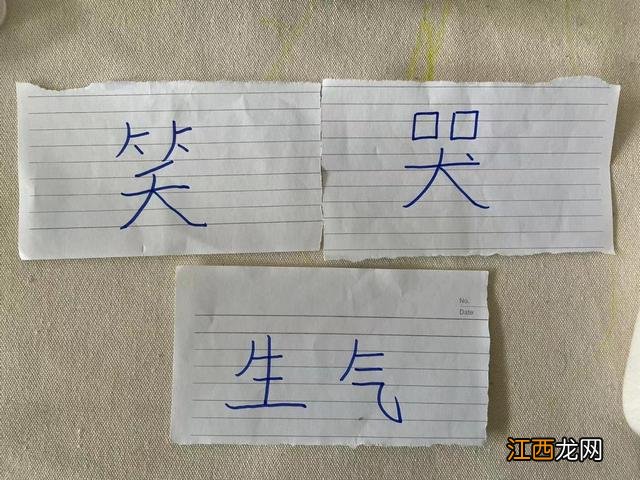 笑
哭
No.
Date
生气
江西龙网